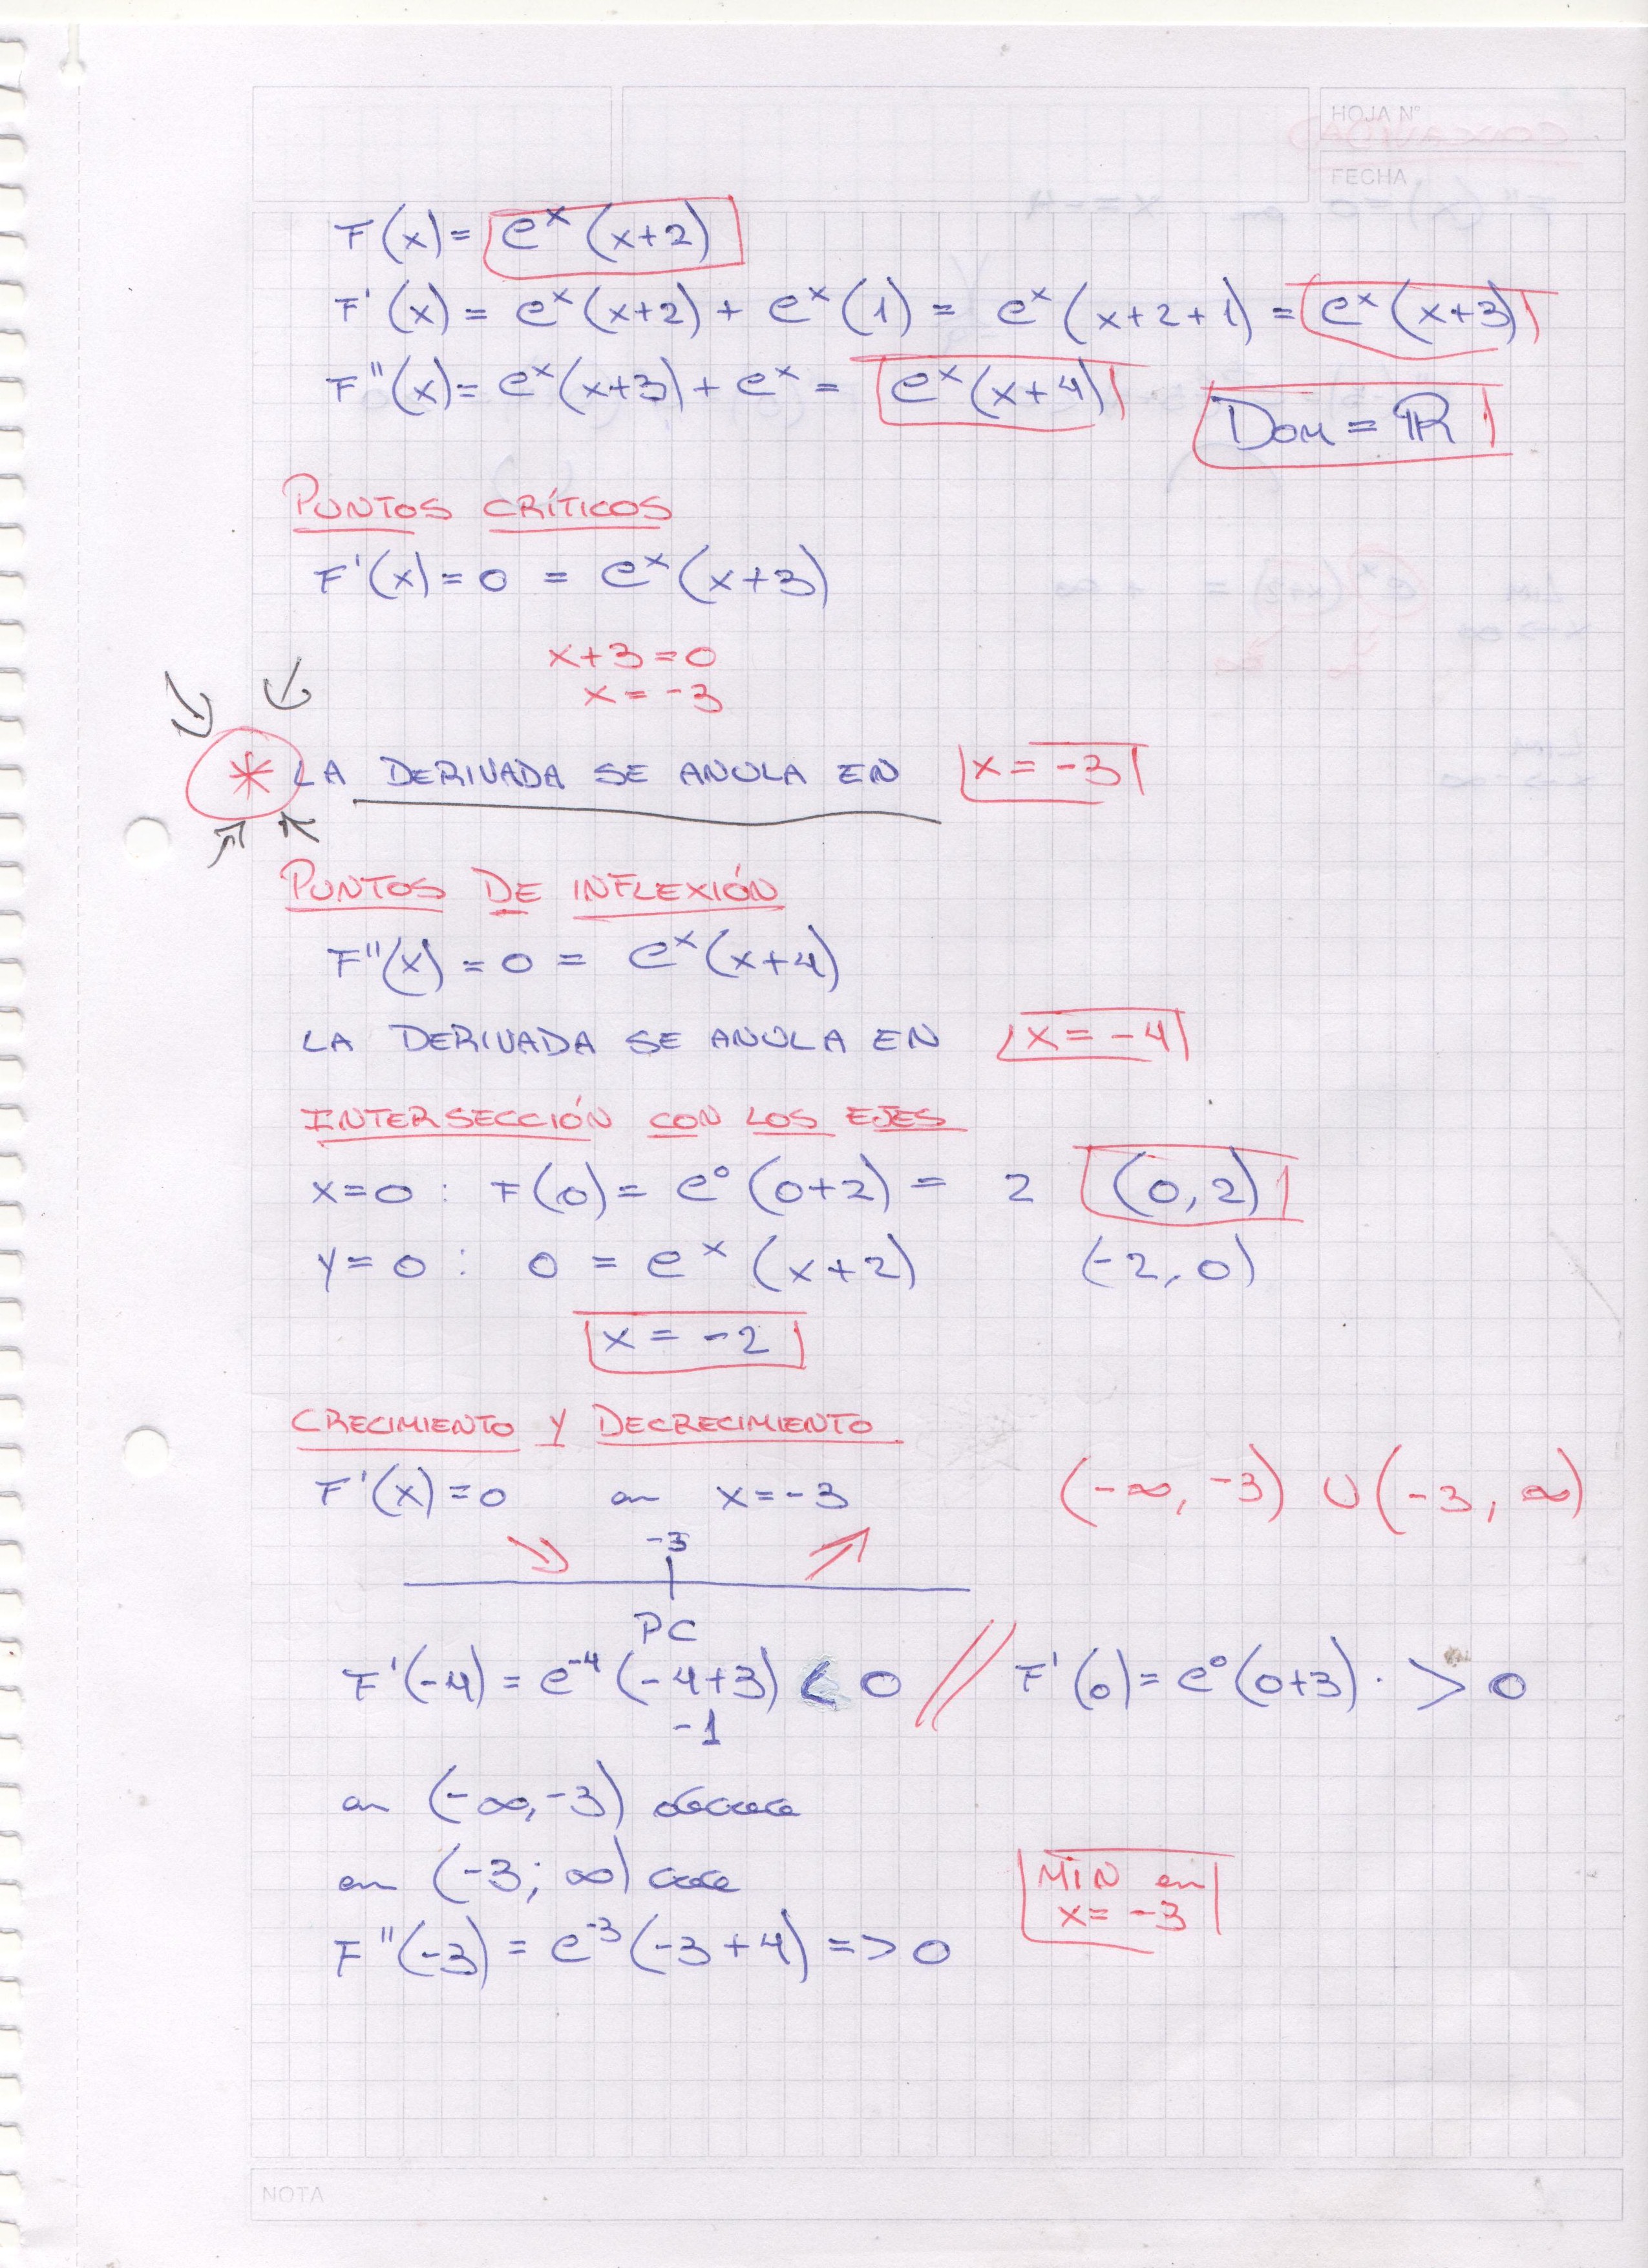 HOJA N°
FECHA
F(x) = e^x (x+2)
F'(x) = e^x (x+2) + e^x (1) = e^x (x+2+1) = e^x (x+3)
F''(x) = e^x (x+3) + e^x = e^x (x+4)
Dom = ℝ
PUNTOS CRÍTICOS
F'(x) = 0 = e^x (x+3)
x+3=0
x = -3
* LA DERIVADA SE ANULA EN x = -3
PUNTOS DE INFLEXIÓN
F''(x) = 0 = e^x (x+4)
LA DERIVADA SE ANULA EN x = -4
INTERSECCIÓN CON LOS EJES
x=0 : F(0) = e^0 (0+2) = 2 (0,2)
y=0 : 0 = e^x (x+2) (-2,0)
x = -2
CRECIMIENTO Y DECRECIMIENTO
F'(x)=0 en x=-3 (-∞, -3) ∪ (-3, ∞)
-3
PC
F'(-4) = e^-4 (-4+3) < 0 // F'(0) = e^0 (0+3) · > 0
-1
en (-∞,-3) decrece
en (-3; ∞) crece
MIN en
x= -3
F''(-3) = e^-3 (-3+4) => 0
NOTA